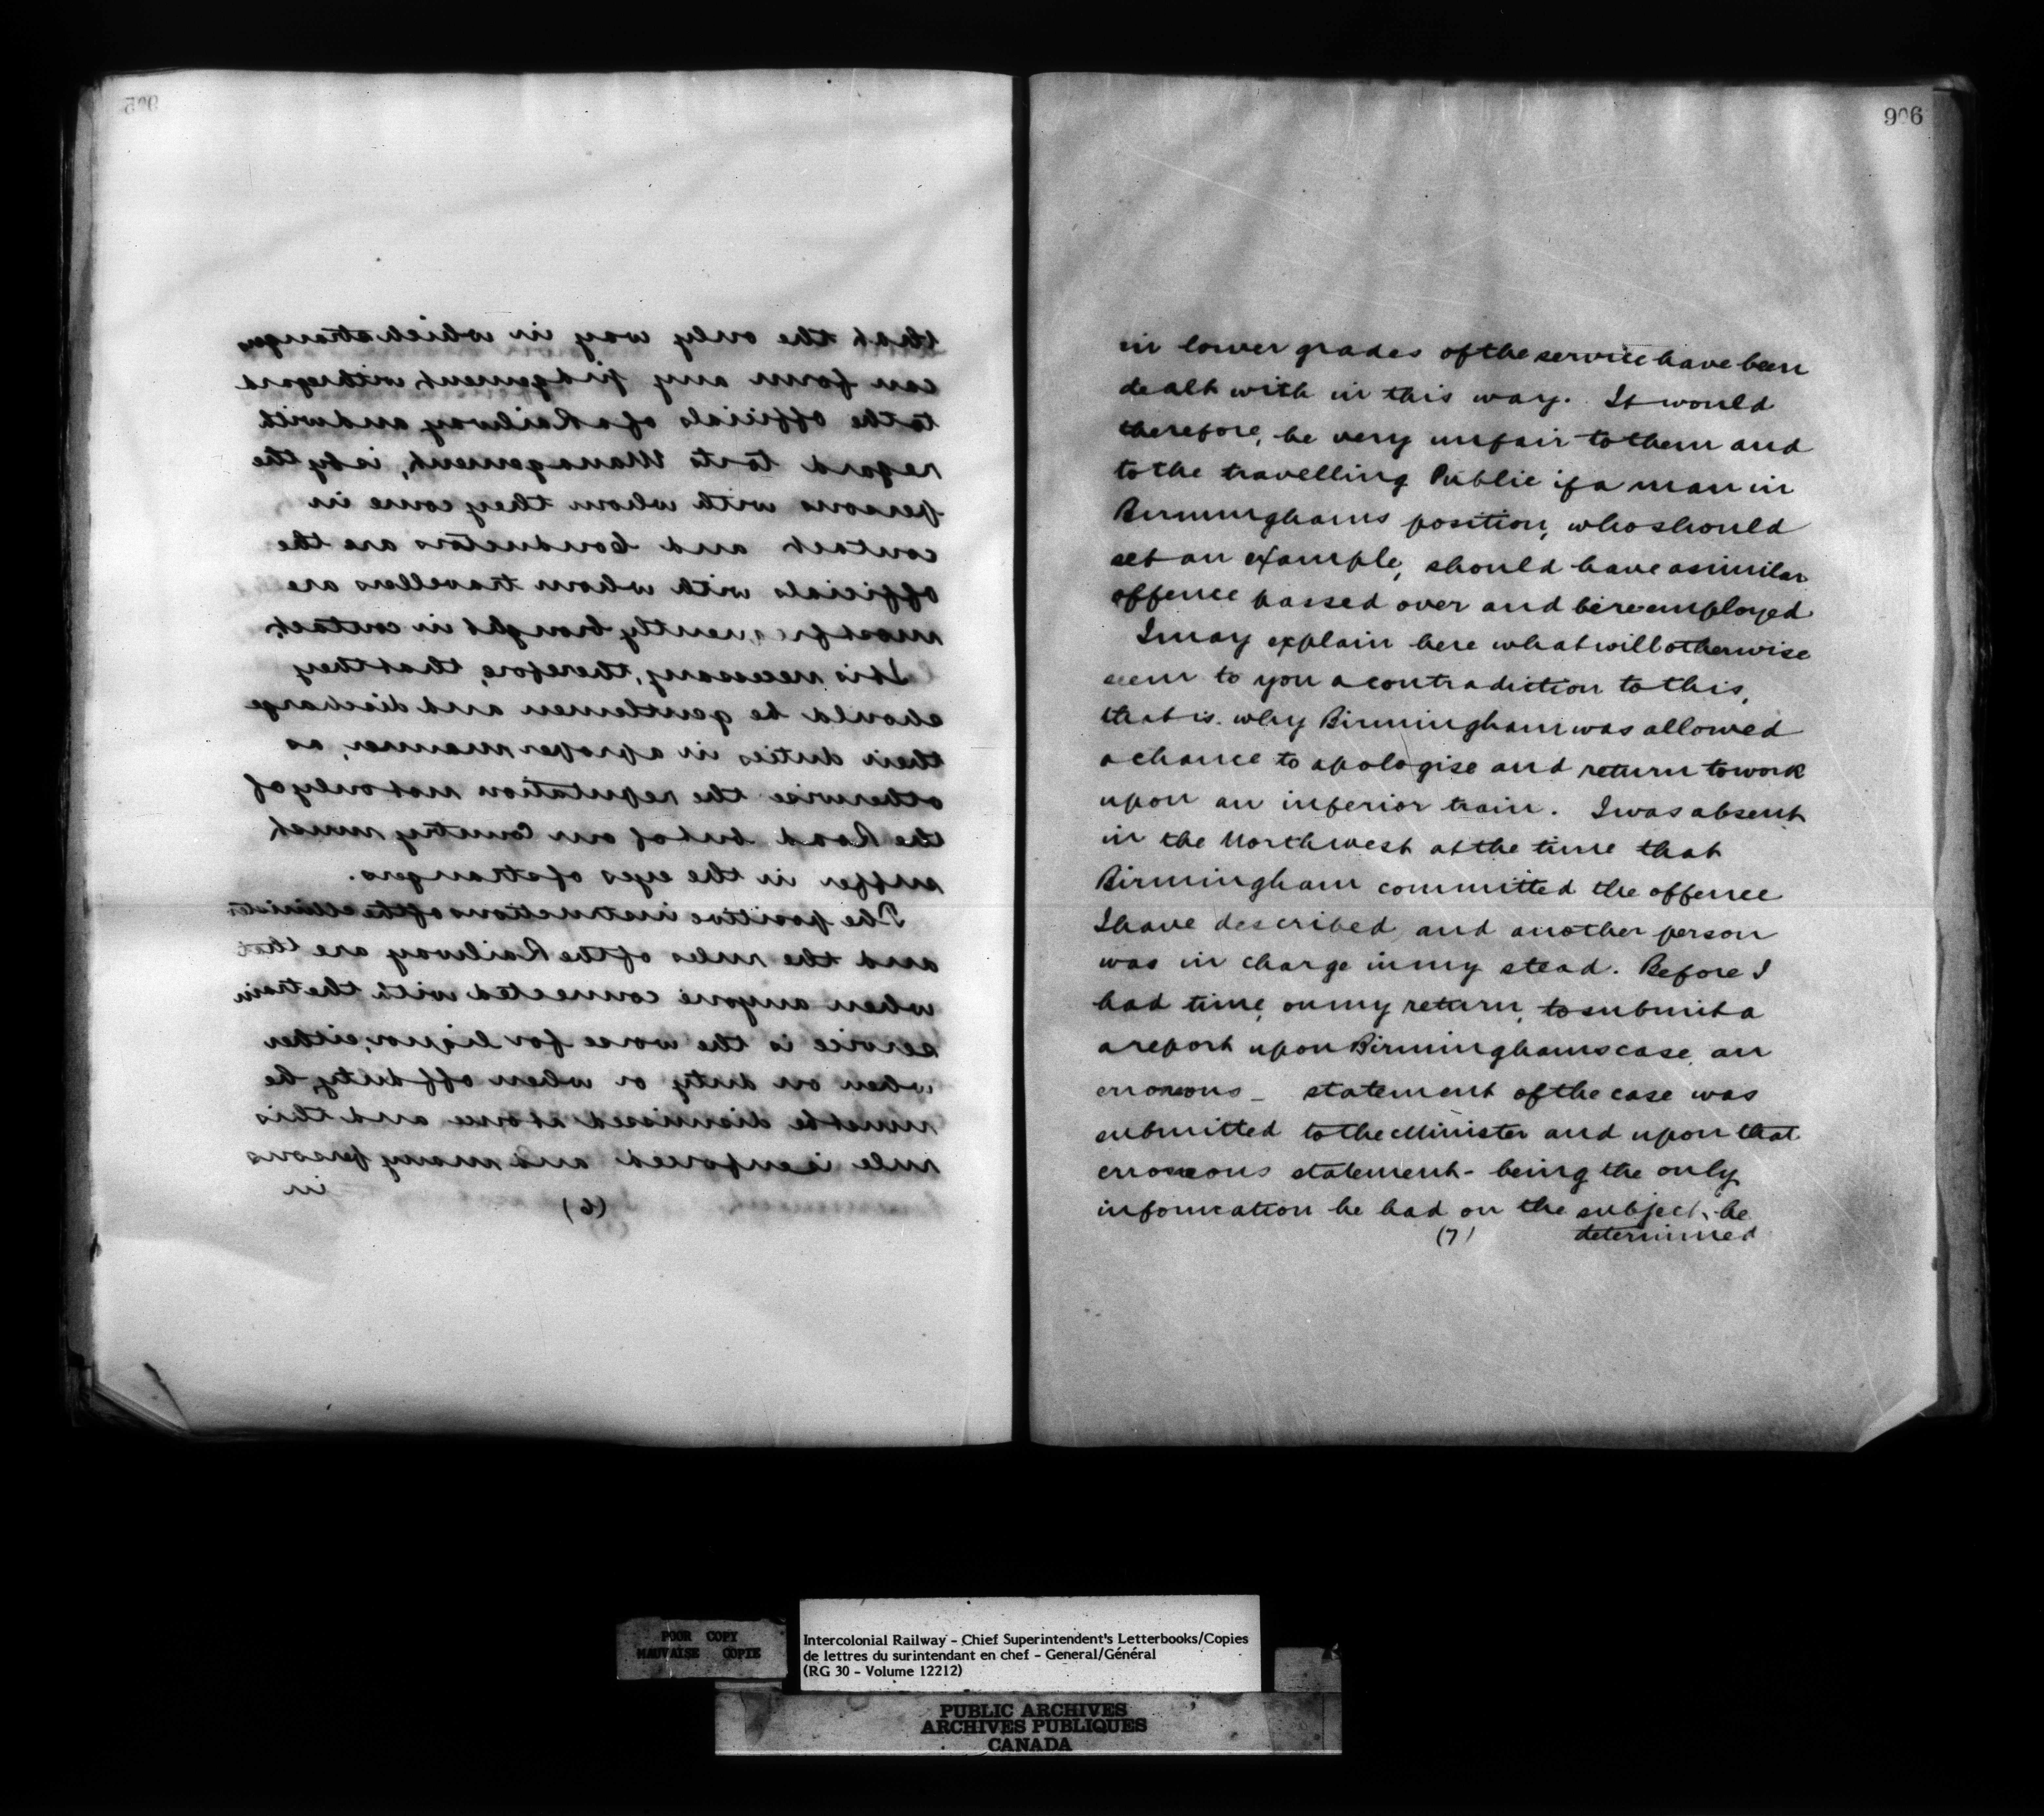 905
that the only way in which strangers
can form any judgement, with regard
to the officials of a Railway and with
regard to its Management, is by the
persons with whom they come in
contact and Conductors are the
officials with whom travellers are
most frequently brought in contact.
It is necessary, therefore, that they
should be gentlemen and discharge
their duties in a proper manner, as
otherwise the reputation not only of
the Road but of our Country must
suffer in the eyes of strangers.
The positive instructions of the Minister
and the rules of the Railway are that
when anyone connected with the train
service is the worse for liquor, either
when on duty or when off duty, he
must be dismissed at once and this
rule is enforced and many persons
in
(6)
906
in lower grades of the service have been
dealt with in this way. It would
therefore, be very unfair to them and
to the travelling Public if a man in
Birminghams position, who should
set an example, should have a similar
offence passed over and be reemployed
I may explain here what will otherwise
seem to you a contradiction to this,
that is. why Birmingham was allowed
a chance to apologise and return to work
upon an inferior train. I was absent
in the Northwest at the time that
Birmingham committed the offence
I have described, and another person
was in charge in my stead. Before I
had time, on my return, to submit a
a report upon Birminghams case, an
erroneous - statement of the case was
submitted to the Minister and upon that
erroneous statement - being the only
information he had on the subject, he
(7) determined
POOR COPY
MAUVAISE COPIE
Intercolonial Railway - Chief Superintendent's Letterbooks/Copies
de lettres du surintendant en chef - General/Général
(RG 30 - Volume 12212)
PUBLIC ARCHIVES
ARCHIVES PUBLIQUES
CANADA